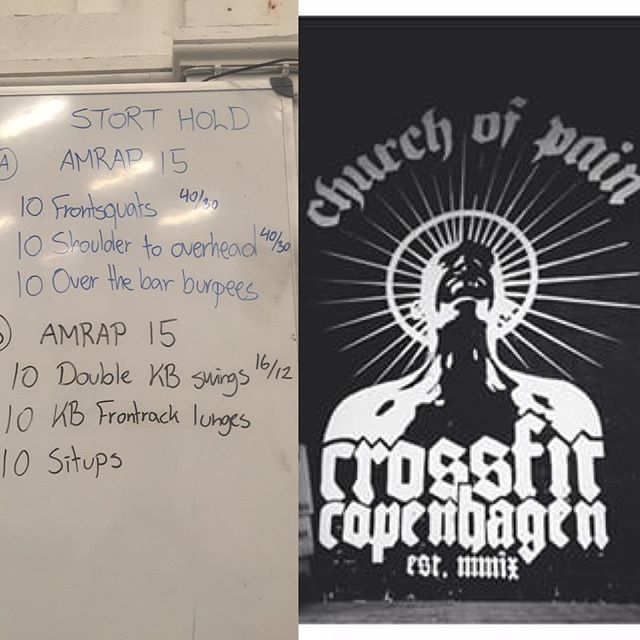 STORT HOLD
A AMRAP 15
10 Frontsquats 40/30
10 Shoulder to overhead 40/30
10 Over the bar burpees
AMRAP 15
10 Double KB swings 16/12
10 KB Frontrack lunges
10 Situps
church of pain
crossfit
copenhagen
est. mmix